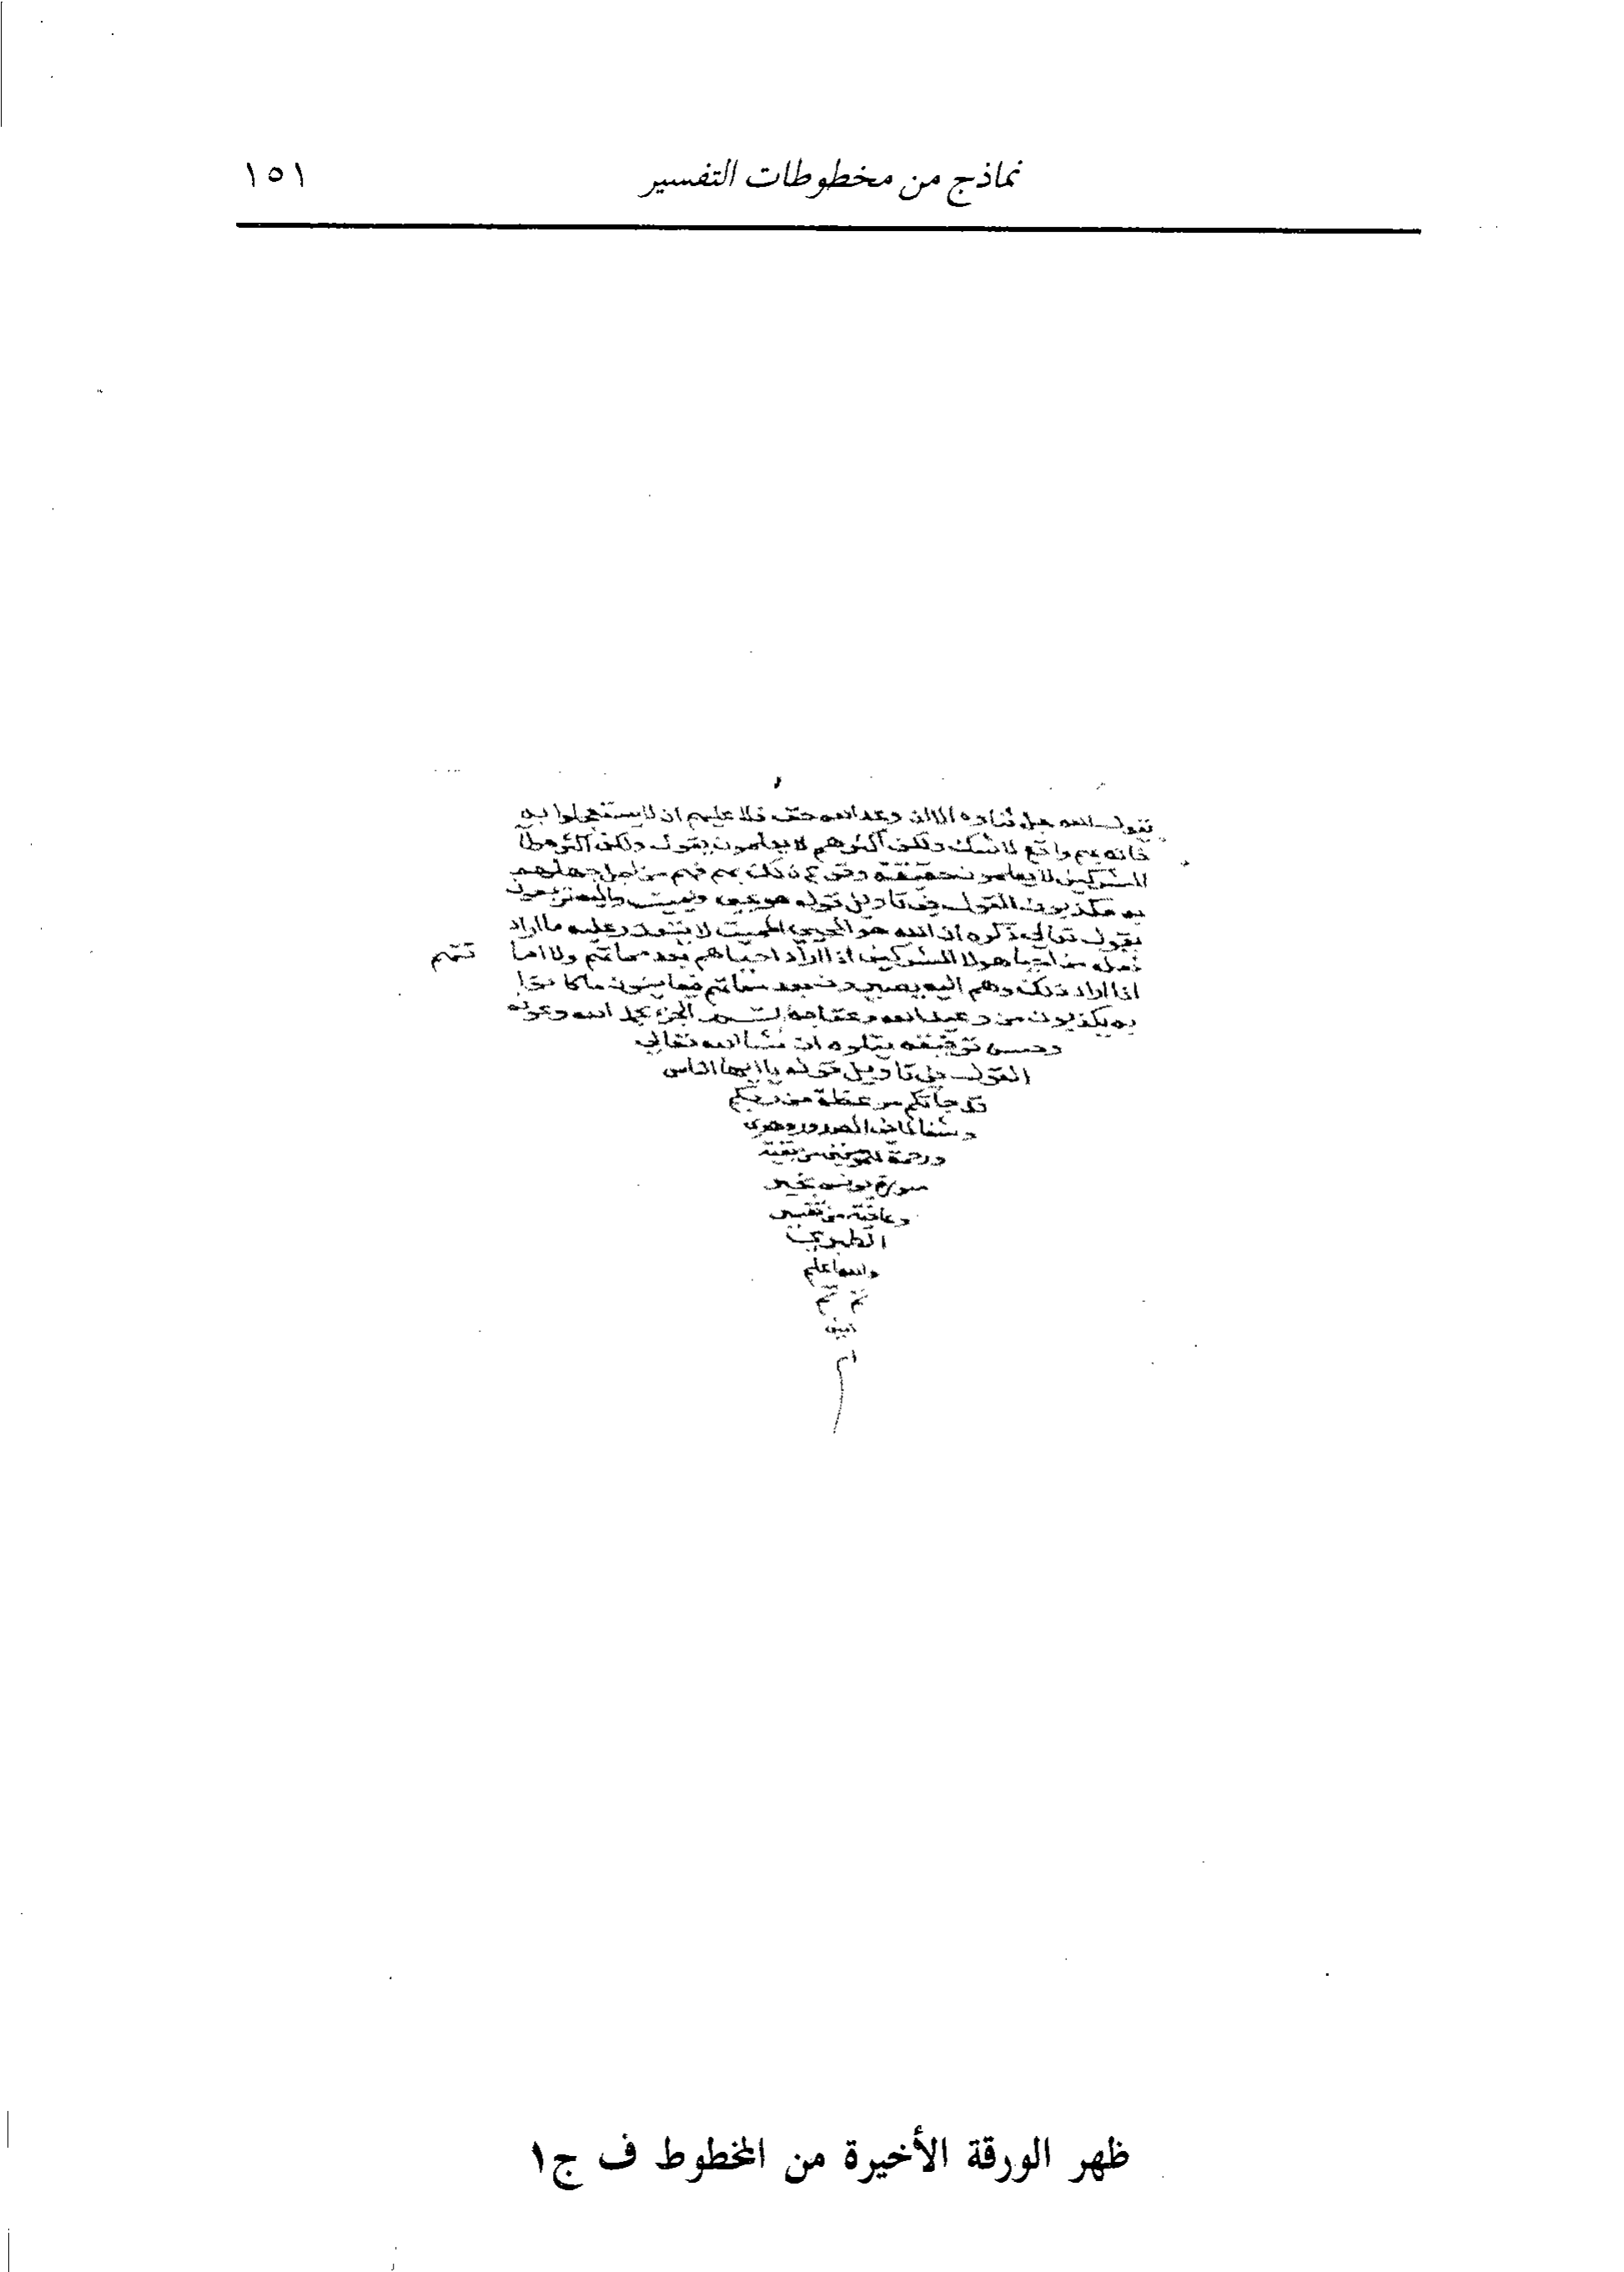 نماذج من مخطوطات التفسير ١٥١
يقول الله جل ثناوه الا ان وعد الله حق فلا عليهم ان لا يستعجلوا به
فانه بهم واقع لا شك ولكن اكثرهم لا يعلمون يقول ولكن اكثر هولا
المشركين لا يعلمون حقيقة وقوع ذلك بهم فهم من اجل جهلهم
به مكذبون القول في تاويل قوله هو يحيي ويميت واليه ترجعون
يقول تعالى ذكره ان الله هو المحيي المميت لا يتعذر عليه ما اراد
فعله من احيا هولا المشركين اذا اراد احياهم بعد مماتهم ولا اما تتهم
اذا اراد ذلك وهم اليه يصيرون بعد مماتهم فيعاينون ما كانوا
به يكذبون من وعيد الله وعقابه الجز بحمد الله وعونه
وحسن توفيقه يتلوه ان شا الله تعالى
القول في تاويل قوله يا ايها الناس
قد جاتكم موعظة من ربكم
وشفا لما في الصدور وهدى
ورحمة للمومنين من بقية
سورة يونس بخير
وعافية من تفسير
الطبري
والله اعلم
تم تم
امين
ظهر الورقة الأخيرة من المخطوط ف ج١